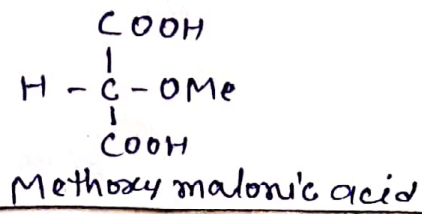 COOH
H - C - OMe
COOH
Methoxy malonic acid